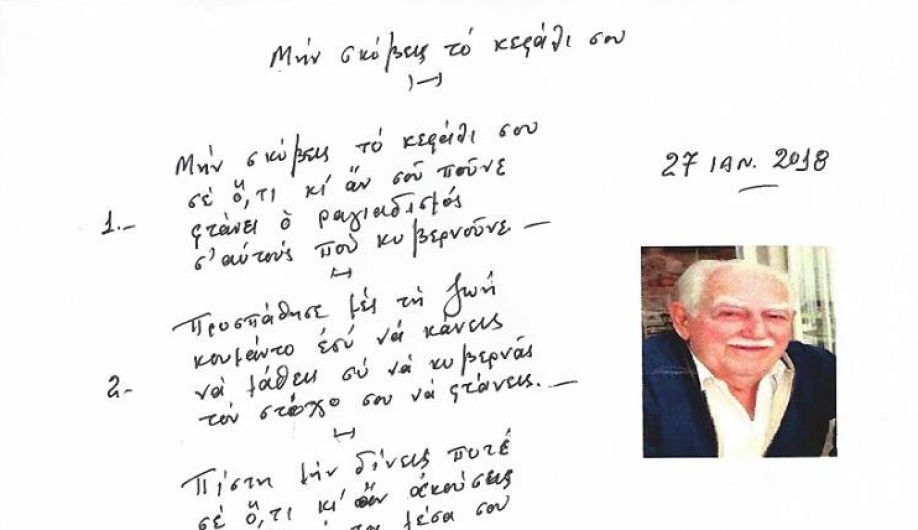 Μήν σκύβεις τό κεφάλι σου
Μήν σκύβεις τό κεφάλι σου
σέ ὅ,τι κι' ἄν σοῦ ποῦνε
1.- φτάνει ὁ ραγιαδισμός
σ' αὐτούς πού κυβερνοῦνε —
Προσπάθησε μές τή ζωή
κουμάντο ἐσύ νά κάνεις
2- νά μάθεις σύ νά κυβερνᾶς
τόν στόχο σου νά φτάνεις. —
Πίστη μήν δίνεις ποτέ
σέ ὅ,τι κι' ἄν ἀκούσεις
μέσα σου
27 ΙΑΝ. 2018